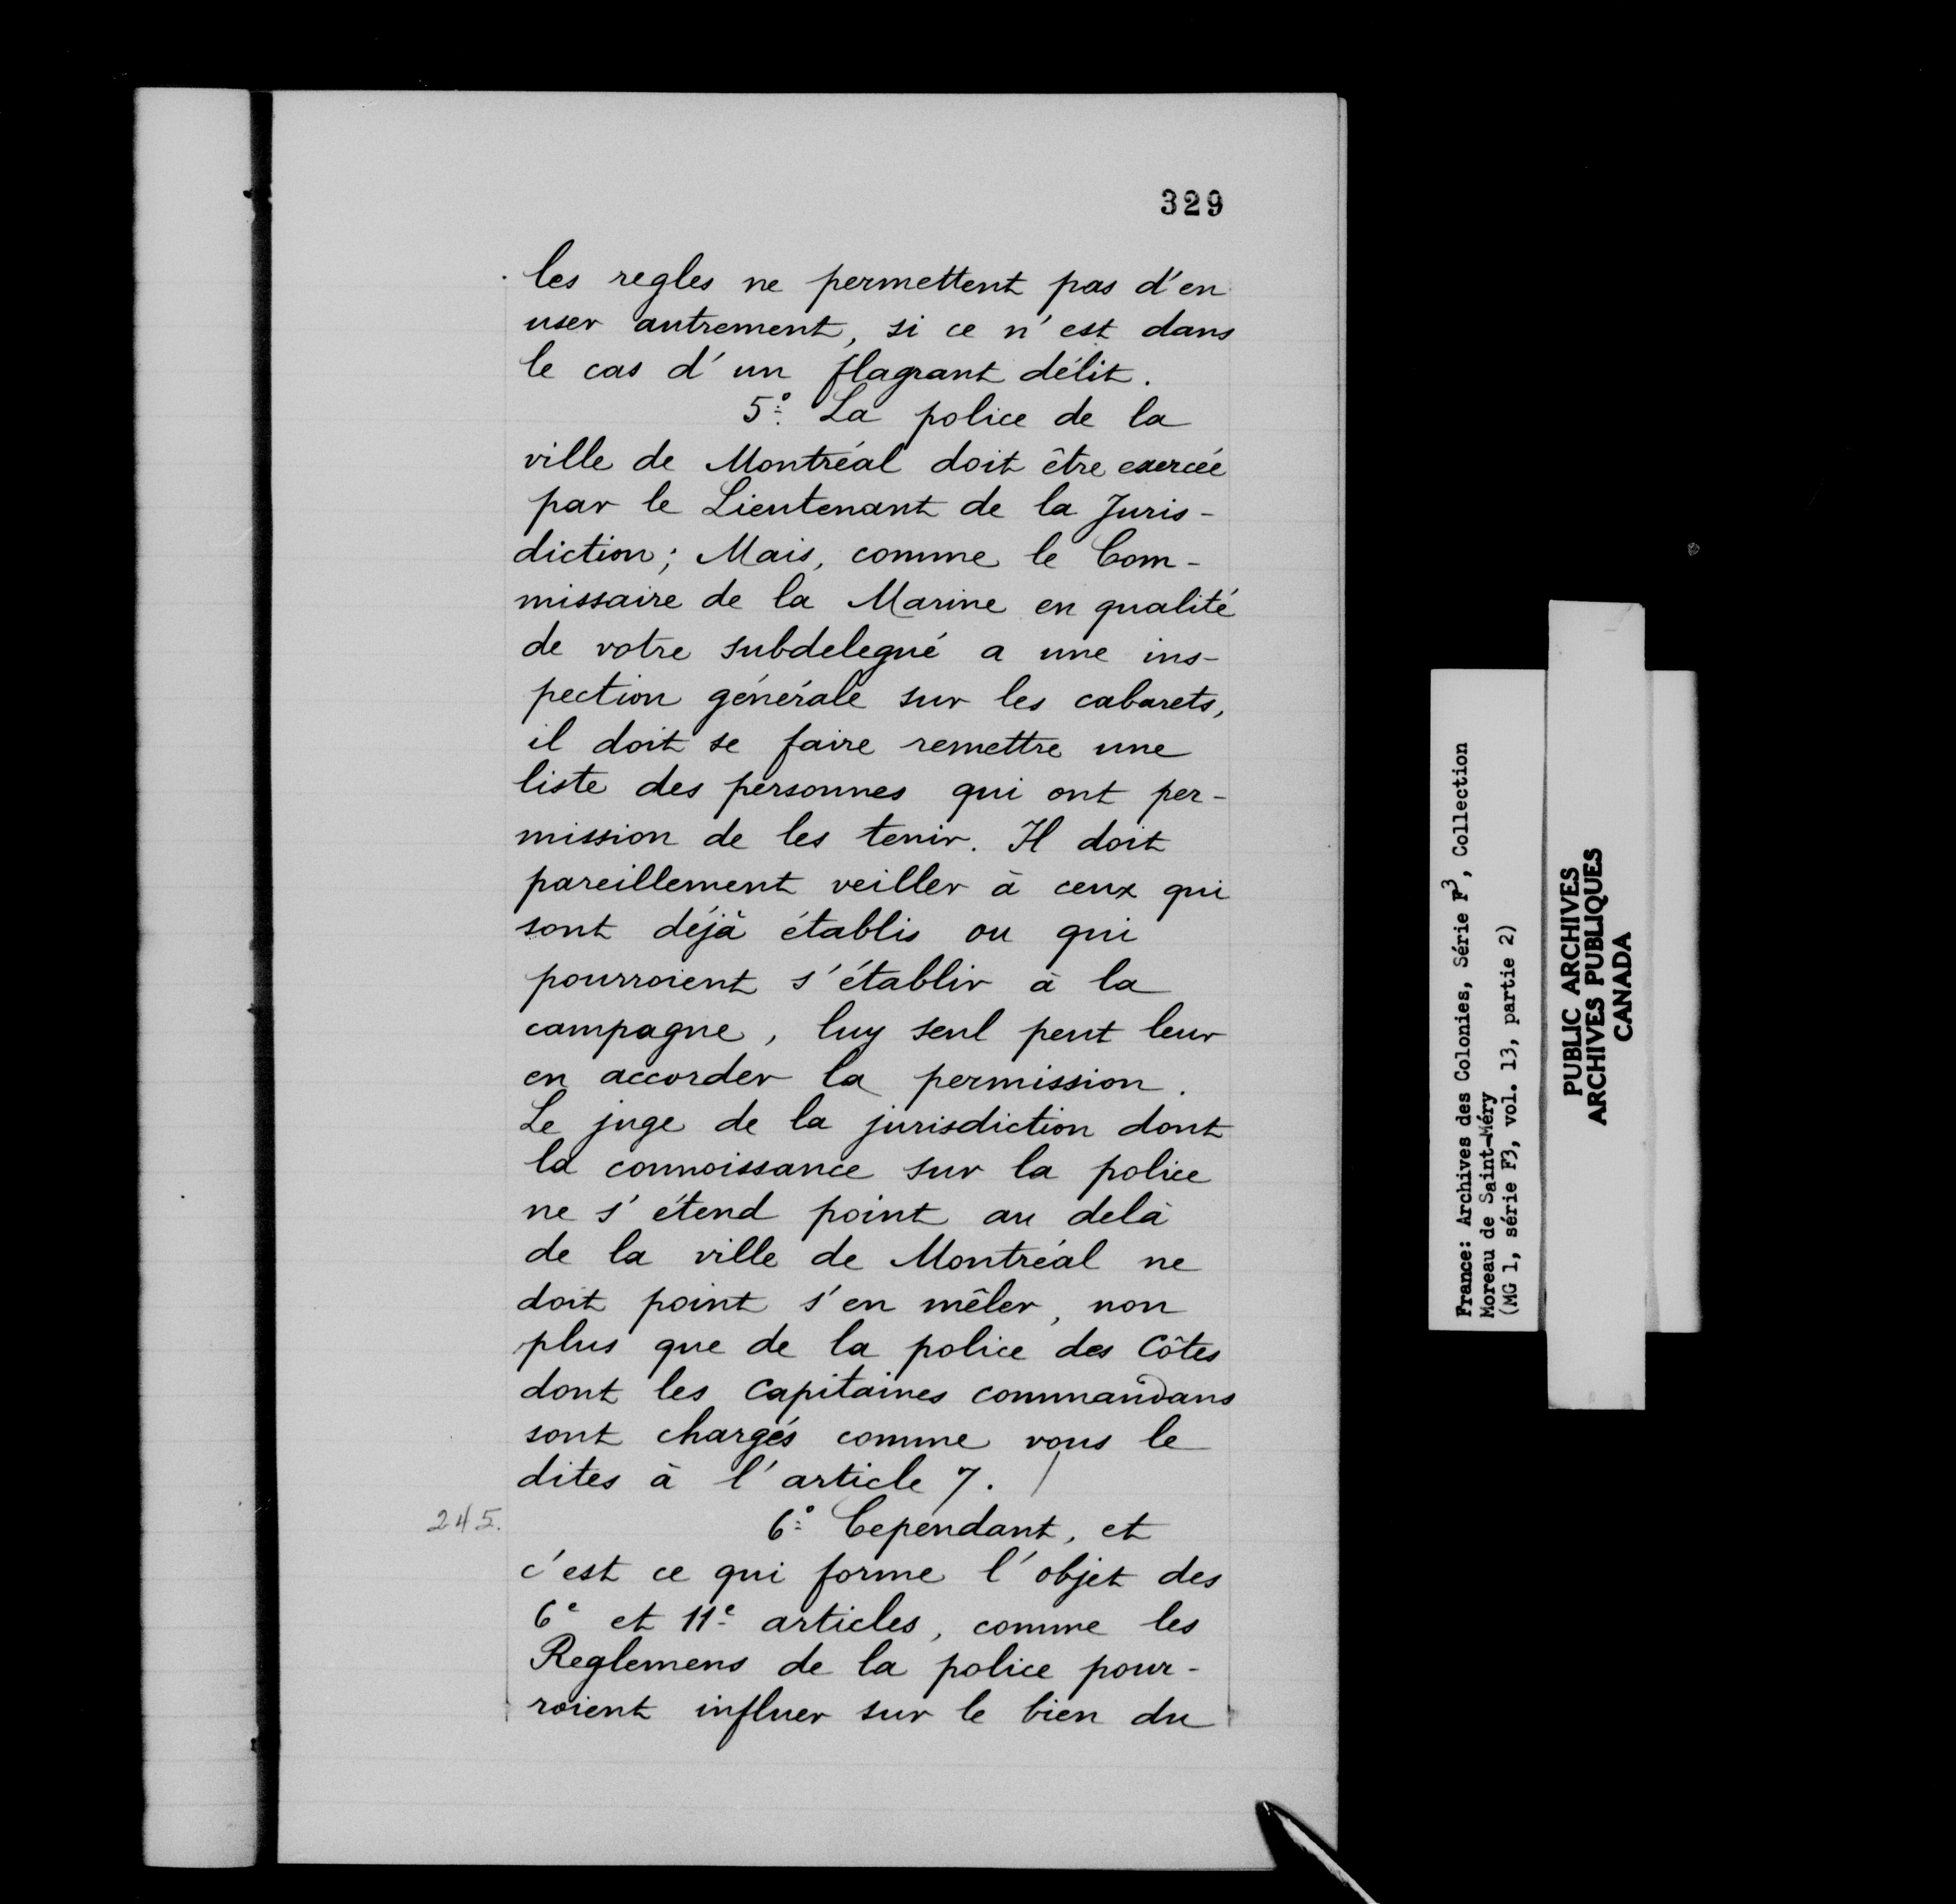 329
les regles ne permettent pas d'en
user autrement, si ce n'est dans
le cas d'un flagrant délit.
5º La police de la
ville de Montréal doit être exercée
par le Lieutenant de la Juris-
diction; Mais, comme le Com-
missaire de la Marine en qualité
de votre subdelegué a une ins-
pection générale sur les cabarets,
il doit se faire remettre une
liste des personnes qui ont per-
mission de les tenir. Il doit
pareillement veiller à ceux qui
sont déjà établis ou qui
pourroient s'établir à la
campagne, luy seul peut leur
en accorder la permission.
Le juge de la jurisdiction dont
la connoissance sur la police
ne s'étend point au delà
de la ville de Montréal ne
doit point s'en mêler, non
plus que de la police des Côtes
dont les Capitaines commandans
sont chargés comme vous le
dites à l'article 7. /
245.
6º Cependant, et
c'est ce qui forme l'objet des
6e et 11e articles, comme les
Reglemens de la police pour-
roient influer sur le bien du
France: Archives des Colonies, Série F3, Collection
Moreau de Saint-Méry
(MG 1, série F3, vol. 13, partie 2)
PUBLIC ARCHIVES
ARCHIVES PUBLIQUES
CANADA